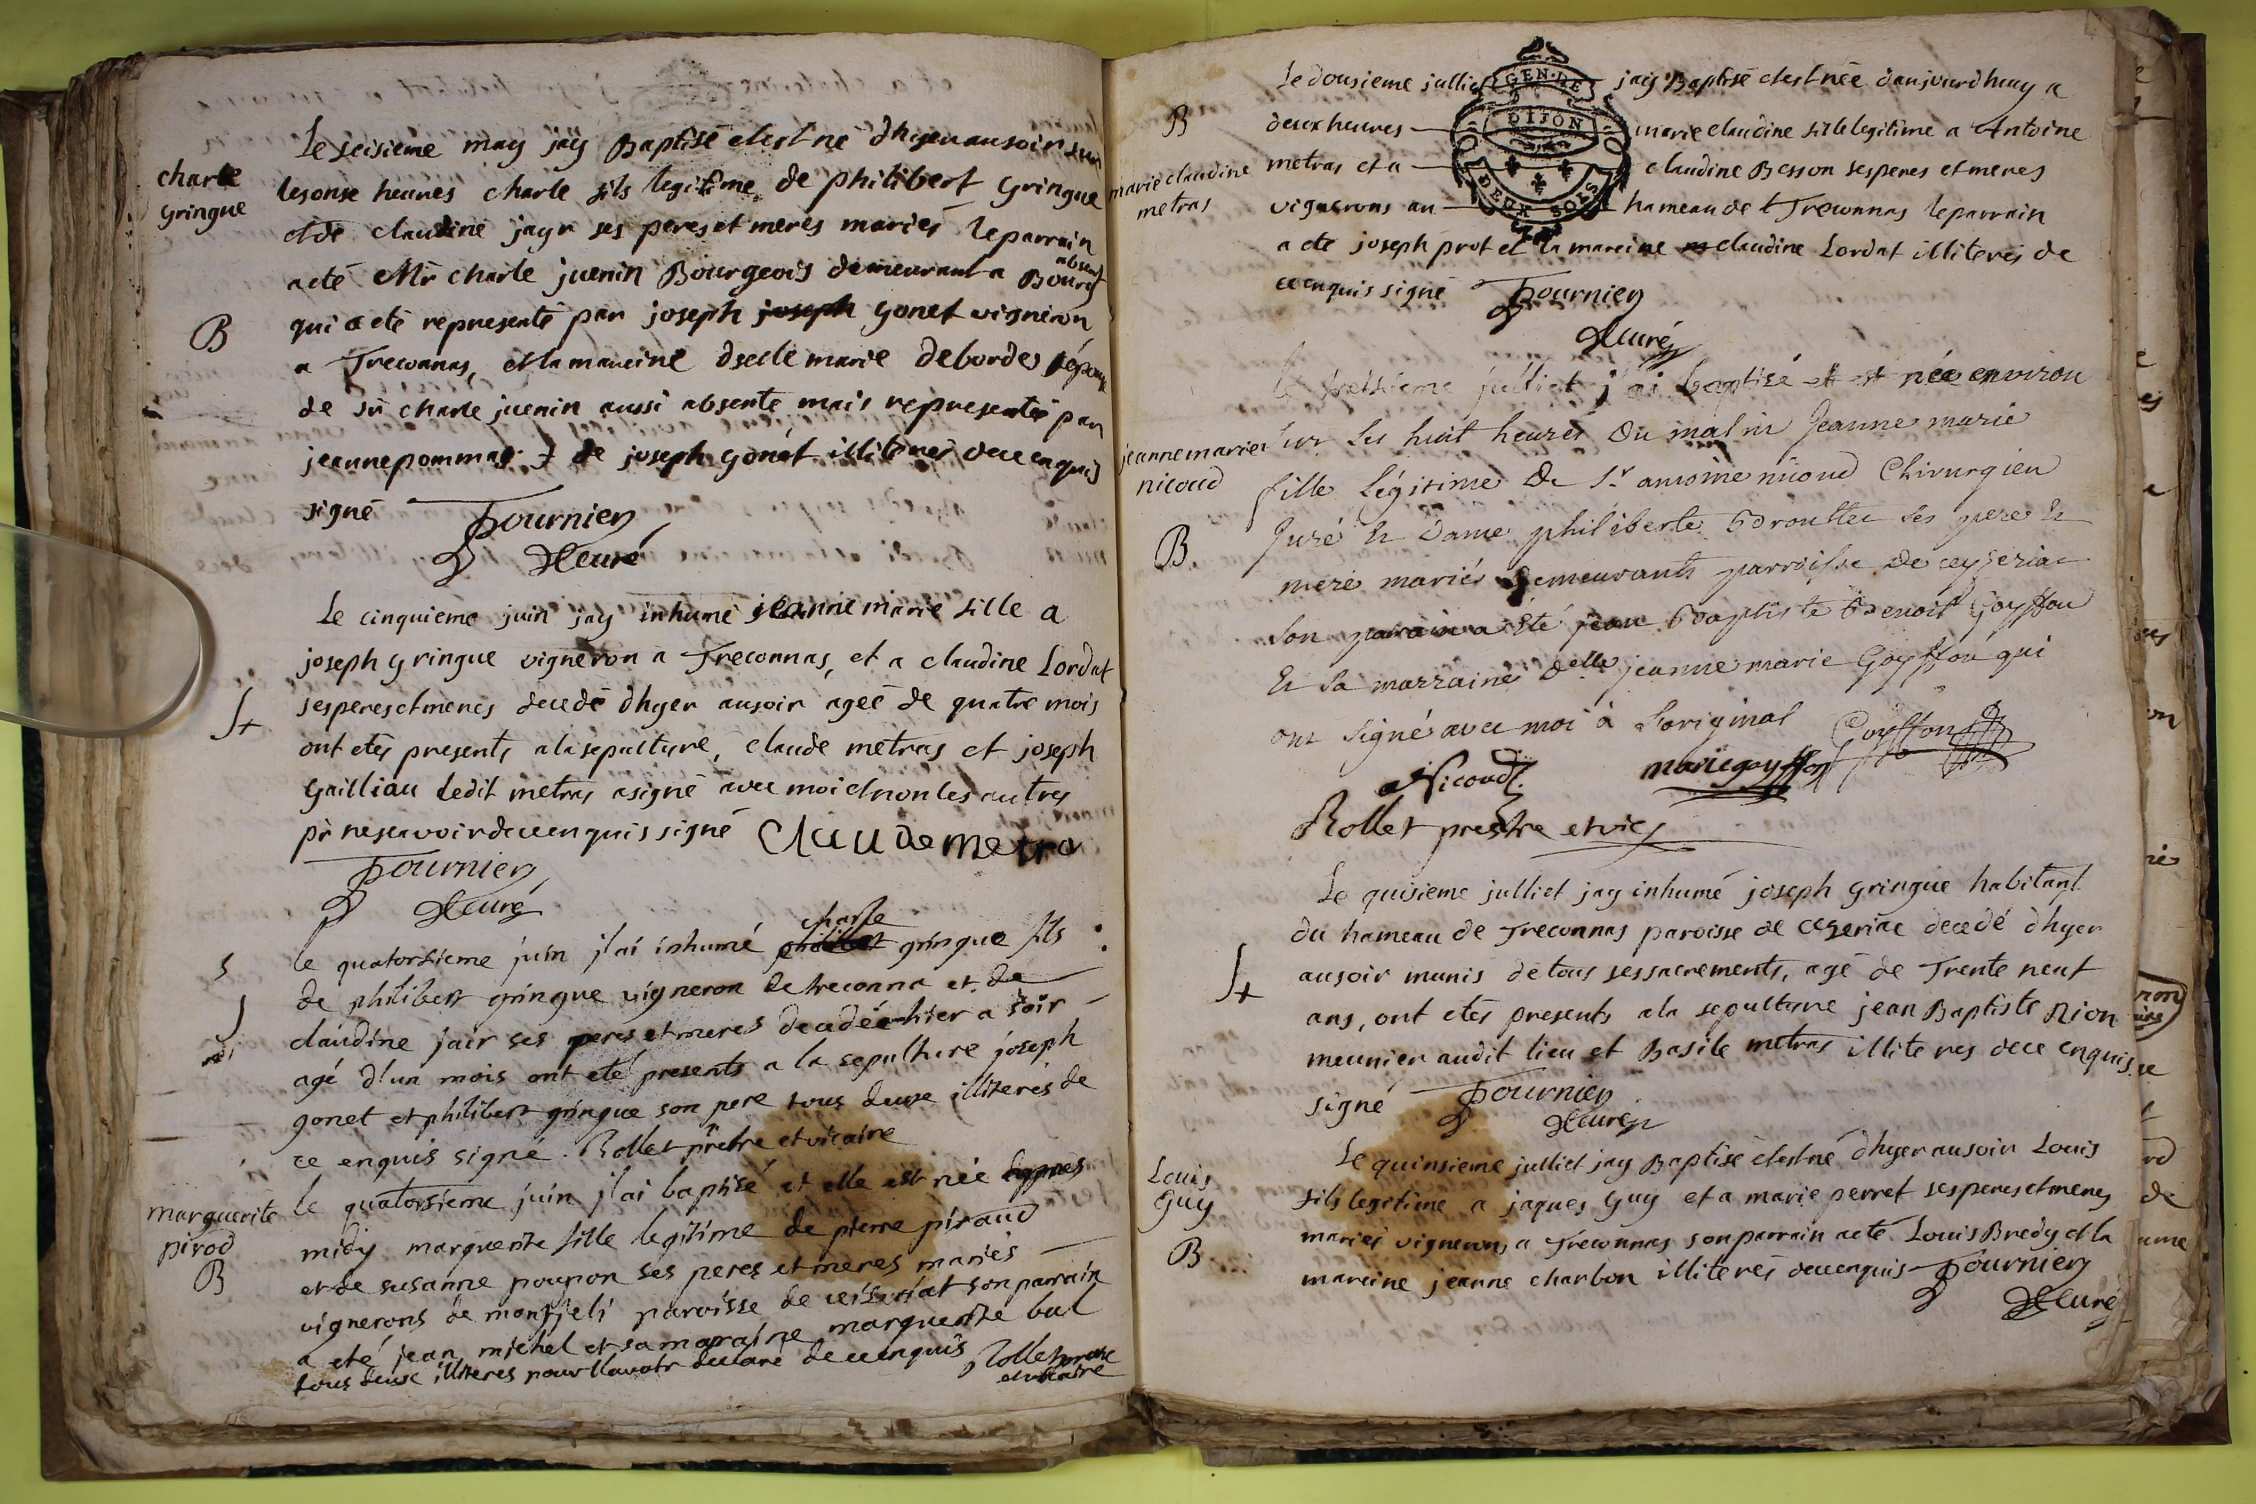 charle
gringue
B
Le seisieme may jay Baptisé et est né dhyer au soir sur
les onse heures charle fils legitime de philibert gringue
et de claudine jayr ses peres et meres mariés le parrain
a eté Mr charle juenin Bourgeois demeurant a Bourg absent
qui a eté representé par joseph joseph gonet vigneron
a Treconnas, et la mareine dselle marie debordes épouse
de sr charle juenin aussi absente mais representée par
jeanne pommas de joseph gonet illiterés de ce enquis
signé Fournier
Curé
Le cinquieme juin jay inhumé jeanne marie fille a
joseph gringue vigneron a Treconnas, et a claudine Lordat
ses peres et meres decedé dhyer au soir agée de quatre mois
ont etés presents a la sepulture, claude metras et joseph
gailliau ledit metras a signé avec moi et non les autres
pr ne scavoir de ce enquis signé Claude metra
Fournier
Curé
S
le quatorsieme juin j'ai inhumé philibert charle gringue fils
de philibert gringue vigneron de treconna et de
claudine jair ses peres et meres decedé hier a soir
agé d'un mois ont eté presents a la sepulture joseph
gonet et philibert gringue son pere tous deuxe illiterés de
ce enquis signé. Rollet pretre et vicaire
marguerite
pirod
B
le quatorsieme juin j'ai baptisé et elle est née
midy marguerite fille legitime de pierre piraud
et de susanne poupon ses peres et meres mariés
vignerons de montjeli paroisse de ceiseriat son parrain
a eté jean michel et sa maraine marguerite bal
tous deuxe illiteres pour llavoir declaré de ce enquis Rollet pretre
et vicaire
B
marie claudine
metras
Le dousieme julliet jay Baptisé et est née daujourdhuy a
deux heures marie claudine fille legitime a Antoine
metras et a claudine Besson ses peres et meres
vignerons au hameau de Treconnas le parrain
a eté joseph prot et la mareine claudine Lordat illiterés de
ce enquis signé Fournier
Curé
GEN. DE
DIJON
DEUX SOLS
jeanne marie
nicoud
B.
le treisieme julliet j'ai baptisé et est née environ
sur les huit heures du matin Jeanne marie
fille légitime de Sr antoine nicoud Chirurgien
Juré et Dame philiberte Broultet ses pere et
mere mariés demeurants parroisse de ceyzeriac
son parrain a été jean baptiste Benoit Goyffon
et sa marraine Delle jeanne marie Goyffon qui
ont signé avec moi à l'original Goyffon
Nicoud mariegoyffon
Rollet prestre et vic
Le quisieme julliet jay inhumé joseph gringue habitant
du hameau de Treconnas paroisse de ceseriac decedé dhyer
au soir munis de tous ses sacrements, agé de Trente neuf
ans, ont etés presents a la sepulture jean Baptiste Rion
meunier audit lieu et Basile metras illiteres de ce enquis
signé Fournier
Curé
Louis
Guy
B
Le quinsieme julliet jay Baptisé et est né dhyer au soir Louis
fils legitime a jaques Guy et a marie perret ses peres et meres
mariés vignerons a Treconnas son parrain a eté Louis Bredy et la
mareine jeanne charbon illiterés de ce enquis Fournier
Curé